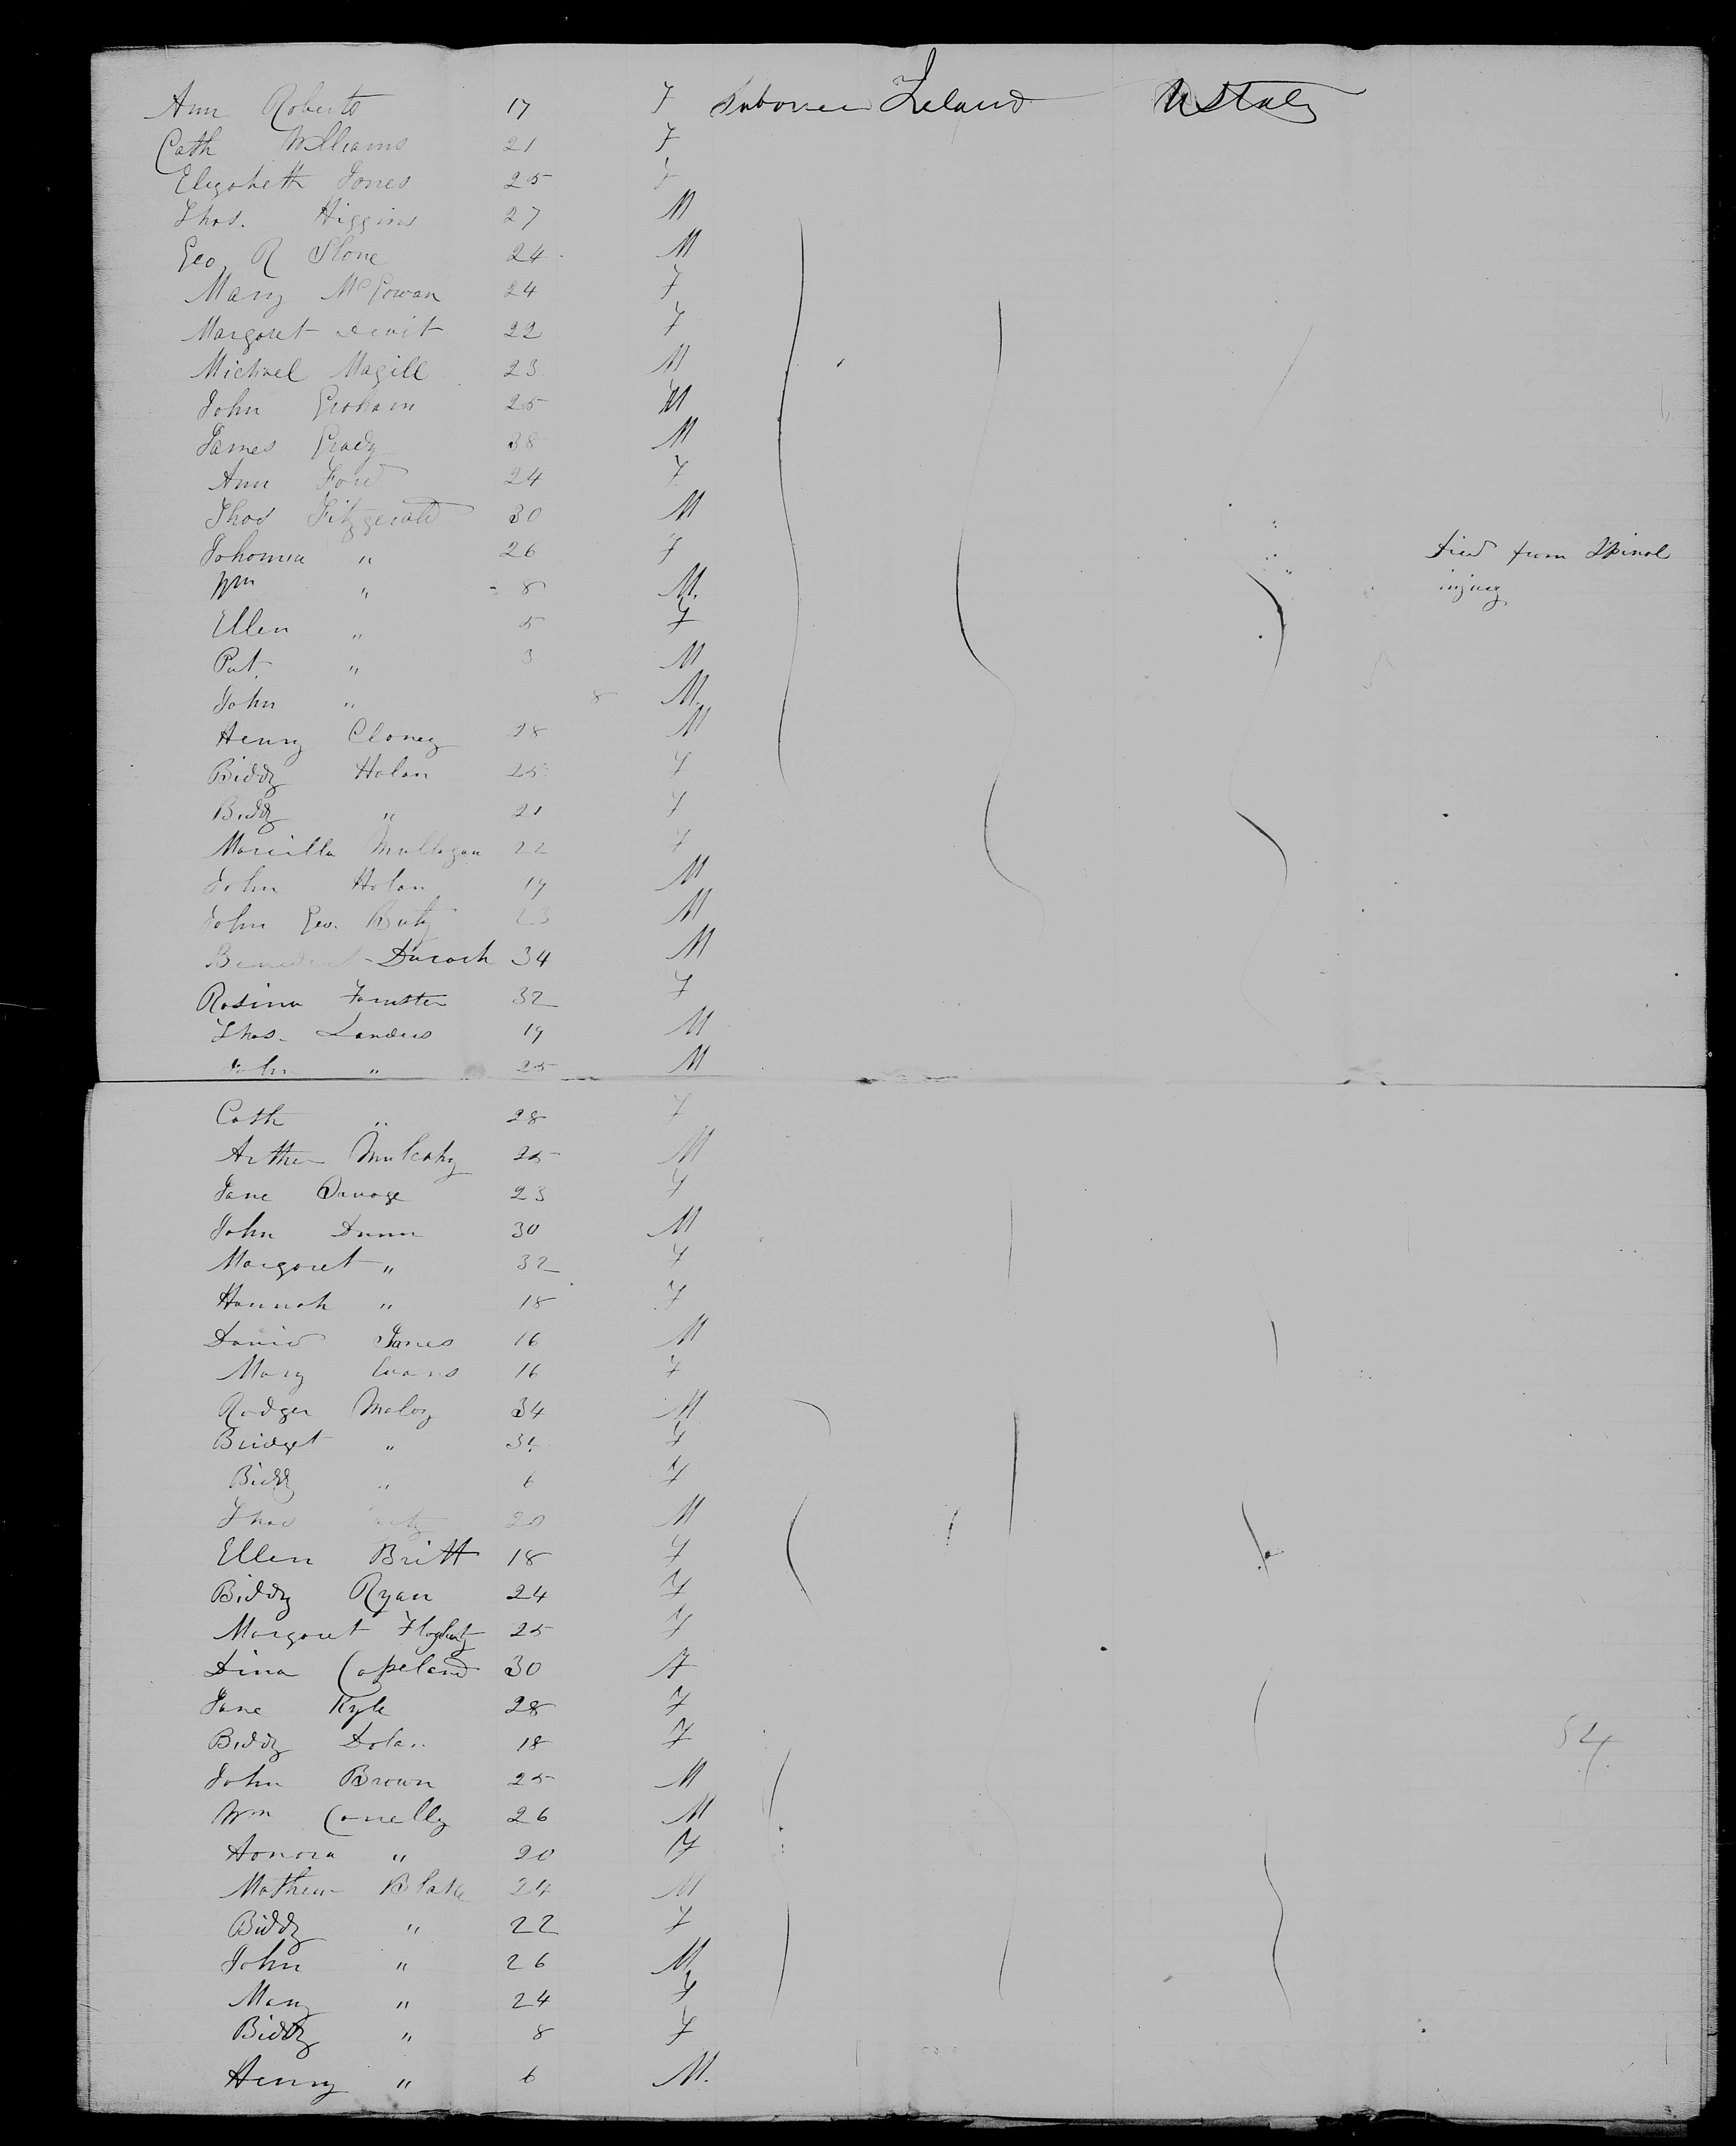 Ann Roberts 17 F Labourer Ireland U States
Cath Williams 21 F
Elizabeth Jones 25 F
Thos. Higgins 27 M
Geo R Stone 24 M
Mary McGowan 24 F
Margaret 22 F
Michael Magill 23 M
John Graham 25 M
James Grady 38 M
Ann Ford 24 F
Thos Fitzgerald 30 M
Johanna " 26 F died from Spinal
Wm " 8 M. injury
Ellen " 5 F
Pat. " 3 M
John " 8 M.
Henry Cloney 28 M
Biddy Holan 25 F
Biddy " 21 F
Mullagan 22 F
John Holan 19 M
John Geo. 23 M
Benedict 34 M
Rosina 32 F
Thos. Landers 19 M
John " 25 M
Cath " 28 F
Arthur Mulcahy 25 M
Jane 23 F
John Dunn 30 M
Margaret " 32 F
Hannah " 18 F
David Jones 16 M
Mary Evans 16 F
Rodger Maloy 34 M
Bridget " F
Biddy " 6 F
Thos 20 M
Ellen Britt 18 F
Biddy Ryan 24 F
Margaret 25 F
Dina Copeland 30 F
Jane Kyle 28 F
Biddy Dolan 18 F 54
John Brown 25 M
Wm Conelly 26 M
Honora " 20 F
Mathew Blake 24 M
Biddy " 22 F
John " 26 M
Mary " 24 F
Biddy " 8 F
Henry " 6 M.